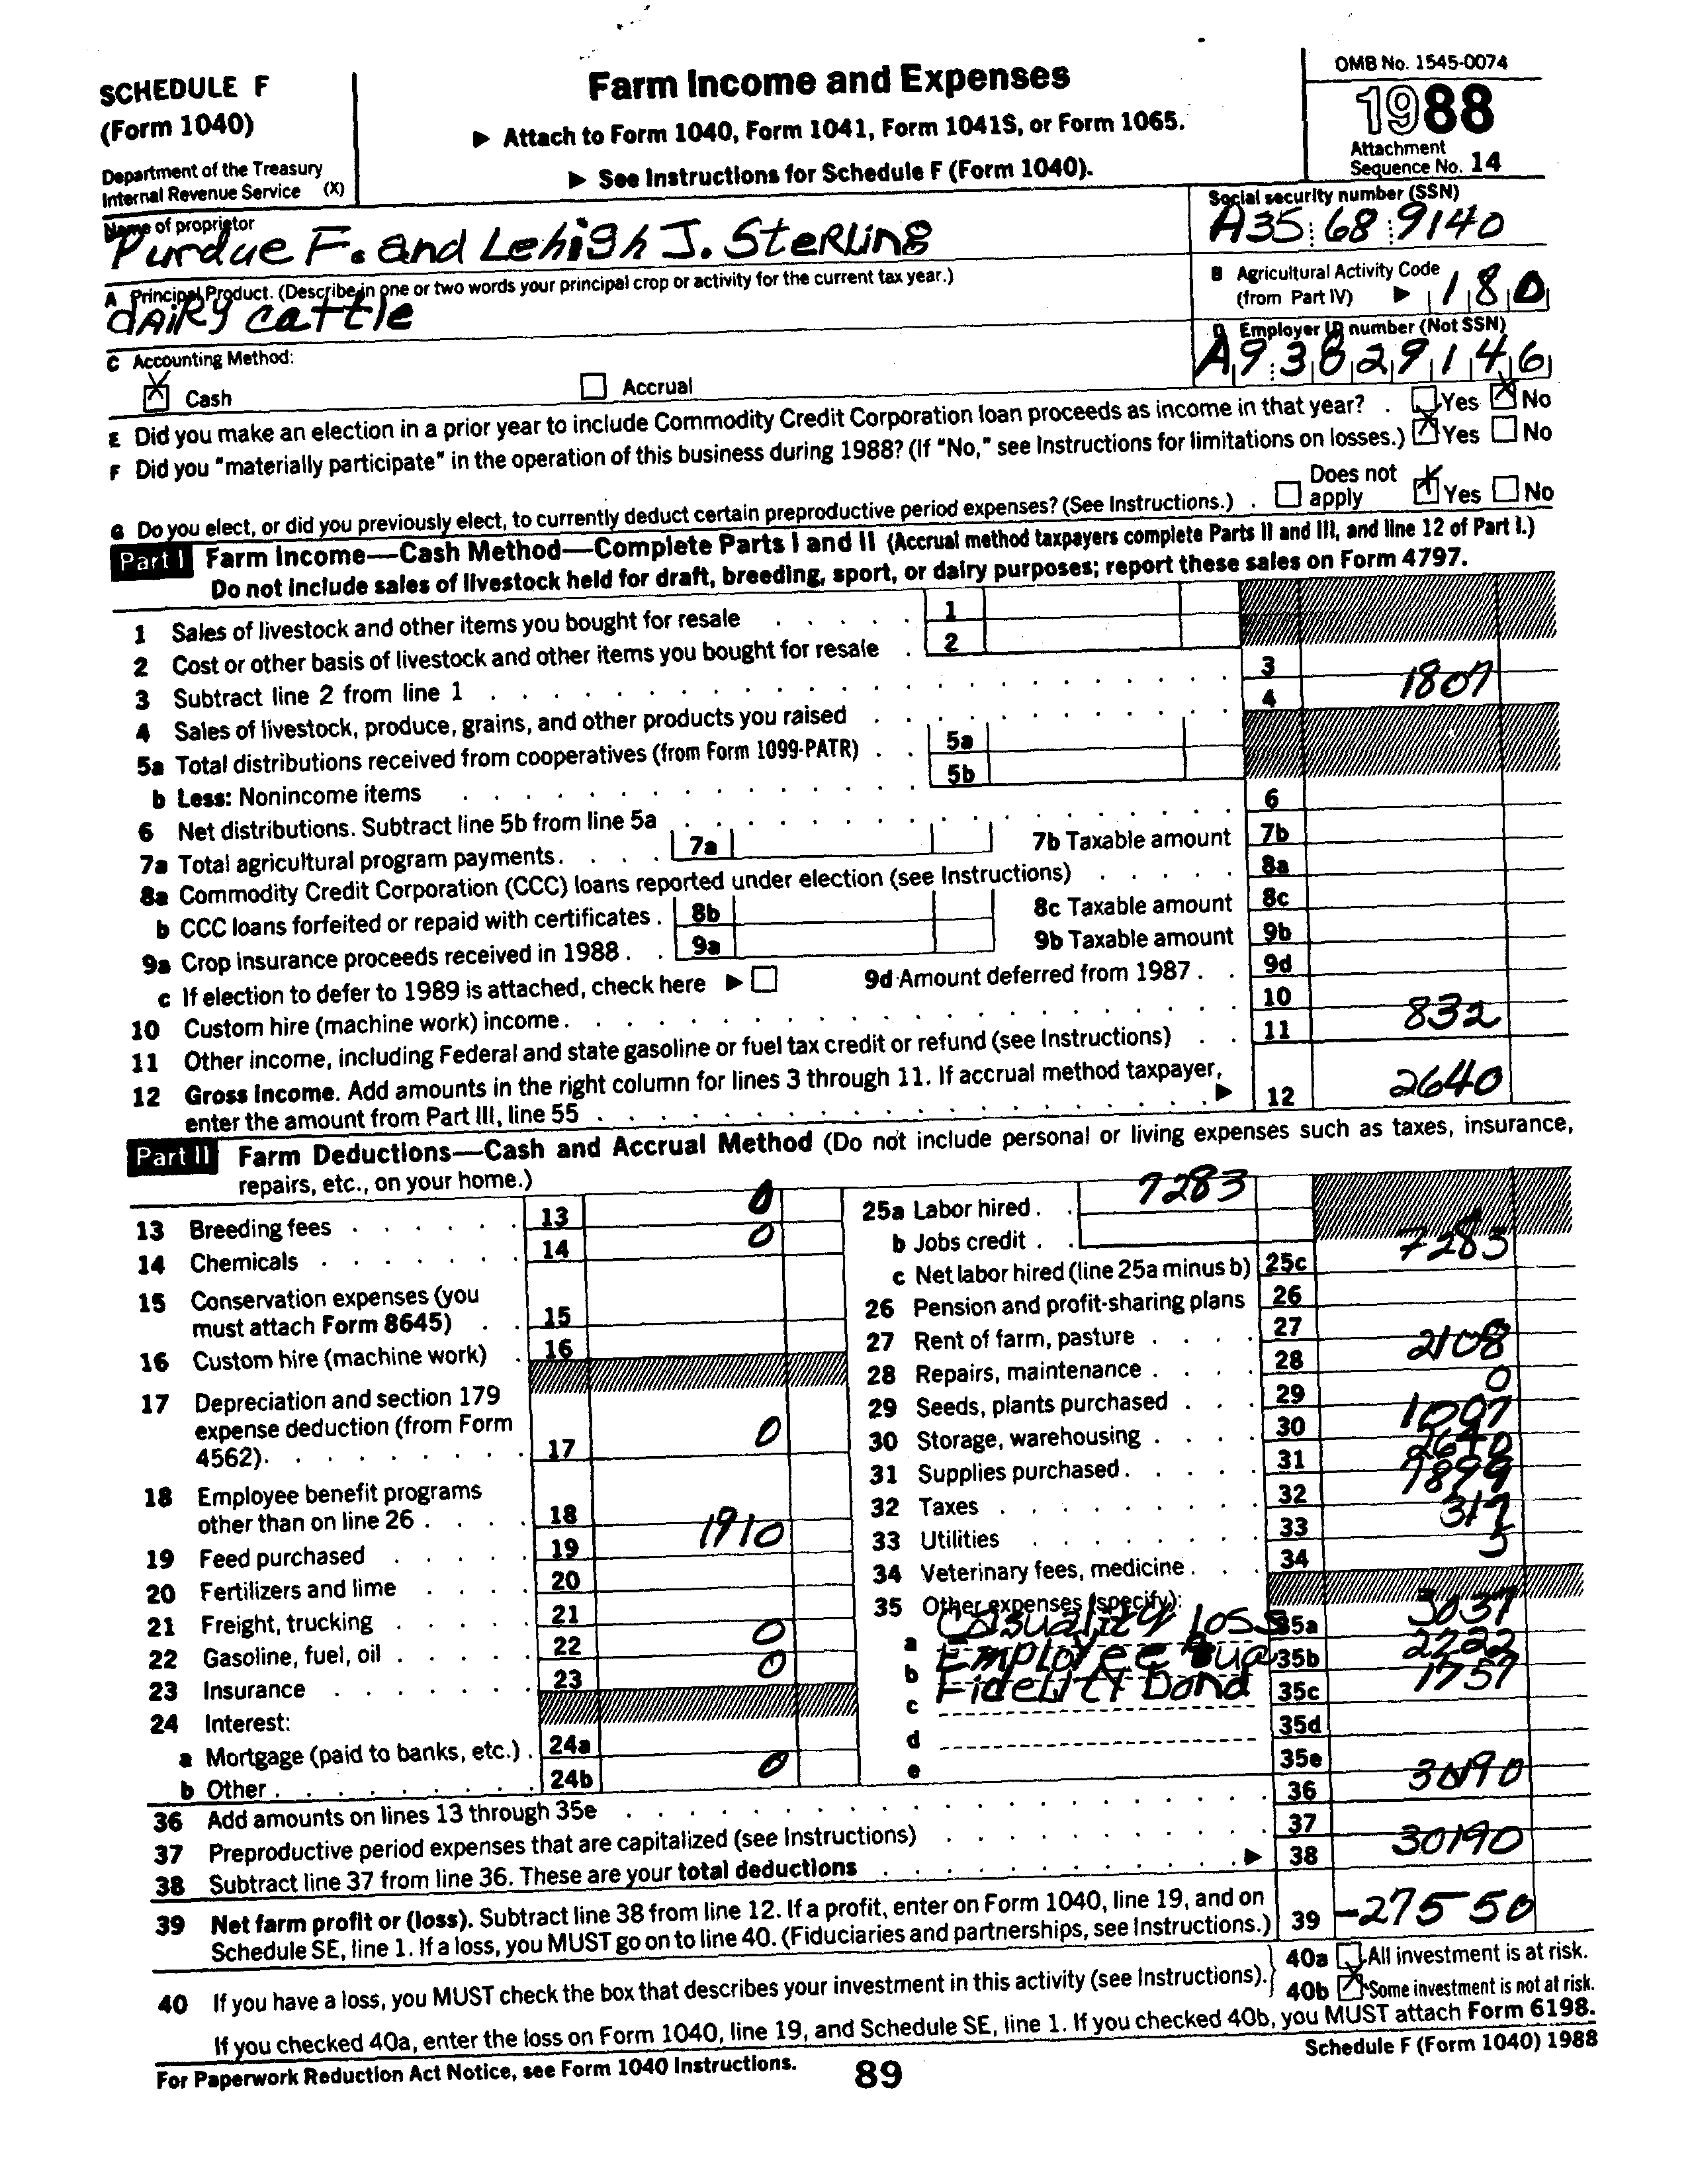 SCHEDULE F
(Form 1040)
Department of the Treasury
Internal Revenue Service (X)
Farm Income and Expenses
▶ Attach to Form 1040, Form 1041, Form 1041S, or Form 1065.
▶ See Instructions for Schedule F (Form 1040).
OMB No. 1545-0074
1988
Attachment
Sequence No. 14
Name of proprietor
Purdue F. and Lehigh J. Sterling
Social security number (SSN)
A35 68 9140
A Principal Product. (Describe in one or two words your principal crop or activity for the current tax year.)
dairy cattle
B Agricultural Activity Code
(from Part IV) ▶ 180
C Accounting Method:
X Cash Accrual
D Employer ID number (Not SSN)
A93829146
E Did you make an election in a prior year to include Commodity Credit Corporation loan proceeds as income in that year? . Yes X No
F Did you "materially participate" in the operation of this business during 1988? (If "No," see Instructions for limitations on losses.) X Yes No
G Do you elect, or did you previously elect, to currently deduct certain preproductive period expenses? (See Instructions.) . Does not apply X Yes No
Part I Farm Income—Cash Method—Complete Parts I and II (Accrual method taxpayers complete Parts II and III, and line 12 of Part I.)
Do not include sales of livestock held for draft, breeding, sport, or dairy purposes; report these sales on Form 4797.
1 Sales of livestock and other items you bought for resale 1
2 Cost or other basis of livestock and other items you bought for resale 2
3 Subtract line 2 from line 1 3
4 Sales of livestock, produce, grains, and other products you raised 4 1807
5a Total distributions received from cooperatives (from Form 1099-PATR) 5a
b Less: Nonincome items 5b
6 Net distributions. Subtract line 5b from line 5a 6
7a Total agricultural program payments. 7a 7b Taxable amount 7b
8a Commodity Credit Corporation (CCC) loans reported under election (see Instructions) 8a
b CCC loans forfeited or repaid with certificates. 8b 8c Taxable amount 8c
9a Crop insurance proceeds received in 1988. 9a 9b Taxable amount 9b
c If election to defer to 1989 is attached, check here ▶ 9d Amount deferred from 1987. 9d
10 Custom hire (machine work) income. 10
11 Other income, including Federal and state gasoline or fuel tax credit or refund (see Instructions) 11 832
12 Gross Income. Add amounts in the right column for lines 3 through 11. If accrual method taxpayer,
enter the amount from Part III, line 55 ▶ 12 2640
Part II Farm Deductions—Cash and Accrual Method (Do not include personal or living expenses such as taxes, insurance,
repairs, etc., on your home.)
13 Breeding fees 13 0
14 Chemicals 14 0
15 Conservation expenses (you
must attach Form 8645) 15
16 Custom hire (machine work) 16
17 Depreciation and section 179
expense deduction (from Form
4562). 17 0
18 Employee benefit programs
other than on line 26 18
19 Feed purchased 19 1910
20 Fertilizers and lime 20
21 Freight, trucking 21
22 Gasoline, fuel, oil 22 0
23 Insurance 23 0
24 Interest:
a Mortgage (paid to banks, etc.) 24a
b Other 24b 0
25a Labor hired 7283
b Jobs credit
c Net labor hired (line 25a minus b) 25c 7283
26 Pension and profit-sharing plans 26
27 Rent of farm, pasture 27
28 Repairs, maintenance 28 2108
29 Seeds, plants purchased 29 0
30 Storage, warehousing 30
31 Supplies purchased 31 2640
32 Taxes 32 7899
33 Utilities 33
34 Veterinary fees, medicine 34
35 Other expenses (specify):
a Casuality loss 35a 3037
b Employee 35b 2222
c Fidelity Bond 35c 1757
d 35d
e 35e
36 Add amounts on lines 13 through 35e 36 30190
37 Preproductive period expenses that are capitalized (see Instructions) 37
38 Subtract line 37 from line 36. These are your total deductions ▶ 38 30190
39 Net farm profit or (loss). Subtract line 38 from line 12. If a profit, enter on Form 1040, line 19, and on
Schedule SE, line 1. If a loss, you MUST go on to line 40. (Fiduciaries and partnerships, see Instructions.) 39 -27550
40 If you have a loss, you MUST check the box that describes your investment in this activity (see Instructions).
40a All investment is at risk.
40b X Some investment is not at risk.
If you checked 40a, enter the loss on Form 1040, line 19, and Schedule SE, line 1. If you checked 40b, you MUST attach Form 6198.
For Paperwork Reduction Act Notice, see Form 1040 Instructions.
89
Schedule F (Form 1040) 1988